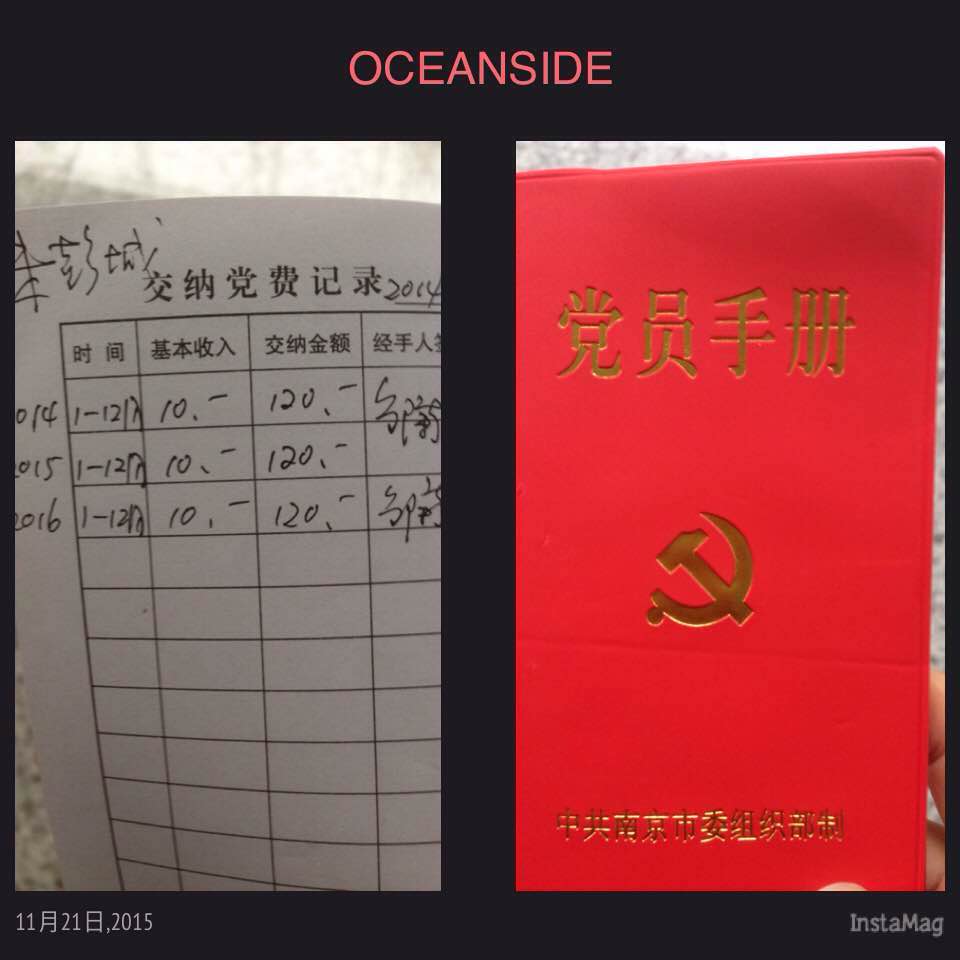 OCEANSIDE
彭城
交纳党费记录 2014
时间 基本收入 交纳金额 经手人签
2014 1-12月 10.- 120.-
2015 1-12月 10.- 120.-
2016 1-12月 10.- 120.-
党员手册
中共南京市委组织部制
11月21日,2015
InstaMag